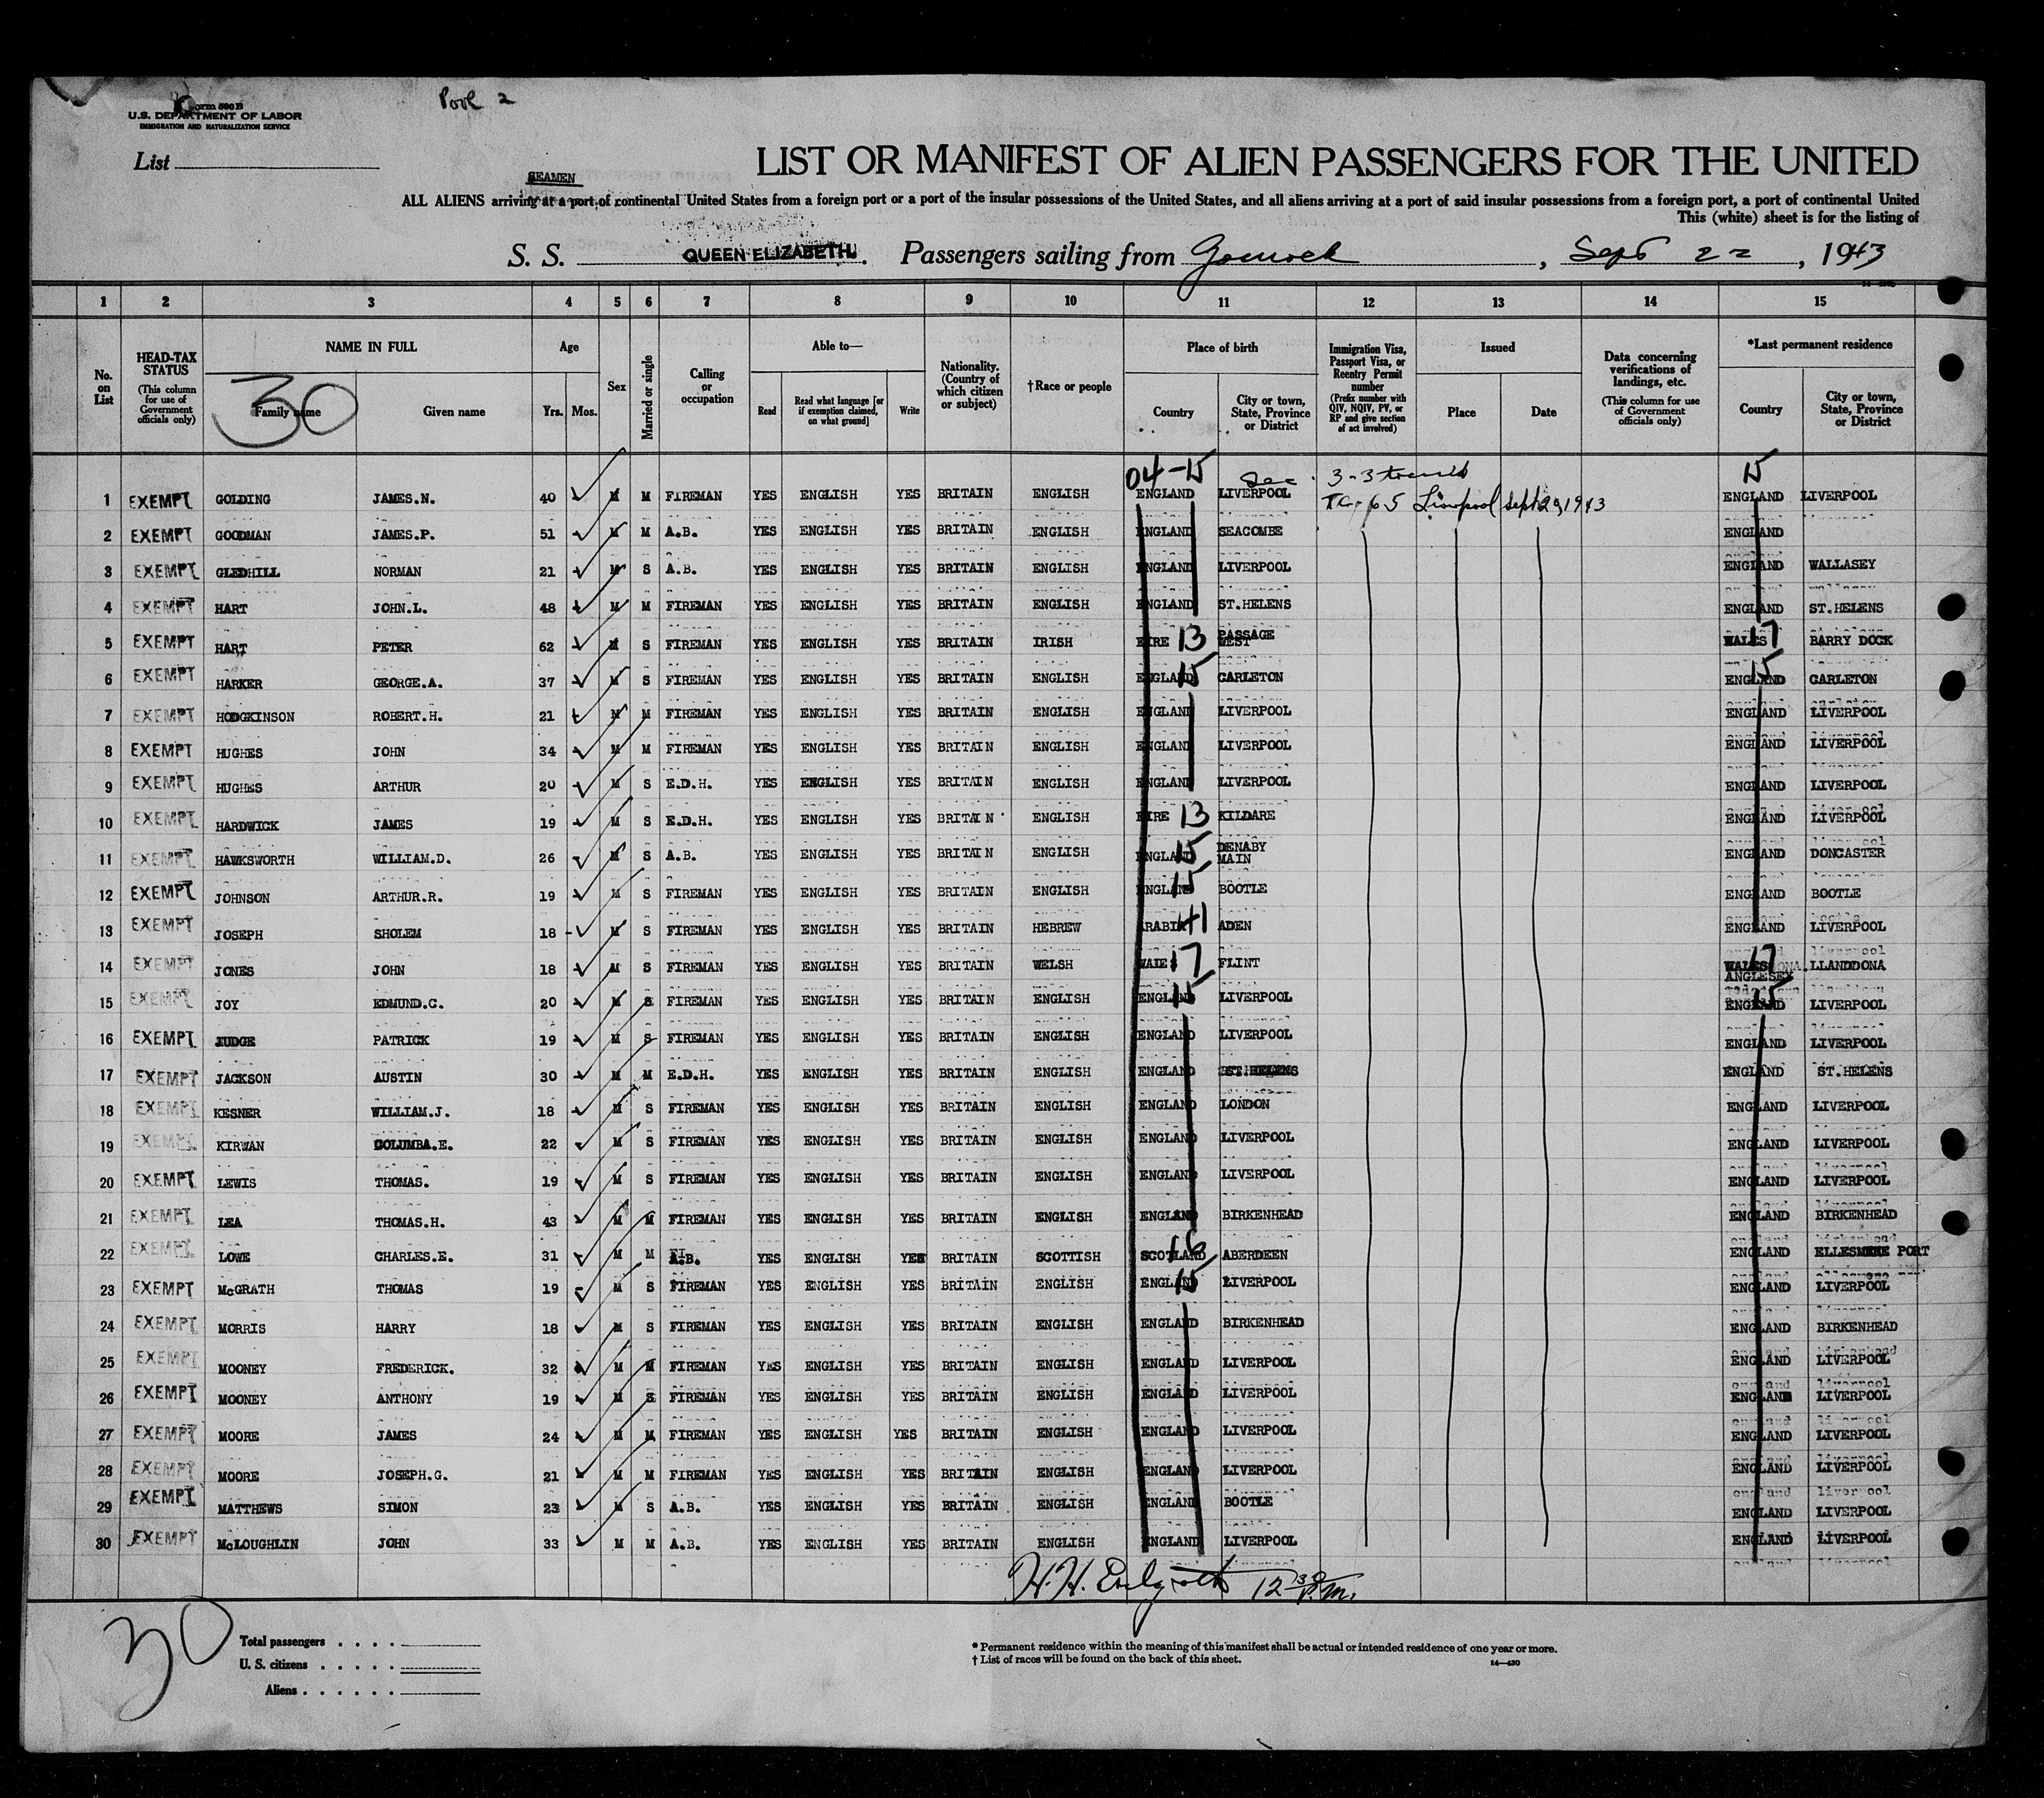 Pool 2
Form 500 B
U.S. DEPARTMENT OF LABOR
IMMIGRATION AND NATURALIZATION SERVICE
List
LIST OR MANIFEST OF ALIEN PASSENGERS FOR THE UNITED
SEAMEN
ALL ALIENS arriving at a port of continental United States from a foreign port or a port of the insular possessions of the United States, and all aliens arriving at a port of said insular possessions from a foreign port, a port of continental United
This (white) sheet is for the listing of
S. S. QUEEN ELIZABETH. Passengers sailing from Gourock, Sept 22, 1943
1 2 3 4 5 6 7 8 9 10 11 12 13 14 15
No. on List
HEAD-TAX STATUS (This column for use of Government officials only)
NAME IN FULL Family name Given name
30
Age Yrs. Mos.
Sex
Married or single
Calling or occupation
Able to— Read Read what language [or if exemption claimed, on what ground] Write
Nationality. (Country of which citizen or subject)
†Race or people
Place of birth Country City or town, State, Province or District
Immigration Visa, Passport Visa, or Reentry Permit number (Prefix number with QIV, NQIV, PV, or RP and give section of act involved)
Issued Place Date
Data concerning verifications of landings, etc. (This column for use of Government officials only)
*Last permanent residence Country City or town, State, Province or District
04-15 Sec. 3-3 transit 15
1 EXEMPT GOLDING JAMES.N. 40 M M FIREMAN YES ENGLISH YES BRITAIN ENGLISH ENGLAND LIVERPOOL 65 Liverpool Sept 20, 1943 ENGLAND LIVERPOOL
2 EXEMPT GOODMAN JAMES.P. 51 M M A.B. YES ENGLISH YES BRITAIN ENGLISH ENGLAND SEACOMBE ENGLAND
3 EXEMPT GLEDHILL NORMAN 21 M S A.B. YES ENGLISH YES BRITAIN ENGLISH ENGLAND LIVERPOOL ENGLAND WALLASEY
4 EXEMPT HART JOHN.L. 48 M M FIREMAN YES ENGLISH YES BRITAIN ENGLISH ENGLAND ST.HELENS ENGLAND ST.HELENS
5 EXEMPT HART PETER 62 M S FIREMAN YES ENGLISH YES BRITAIN IRISH EIRE 13 PASSAGE WEST WALES 17 BARRY DOCK
6 EXEMPT HARKER GEORGE.A. 37 M S FIREMAN YES ENGLISH YES BRITAIN ENGLISH ENGLAND 15 CARLETON ENGLAND 15 CARLETON
7 EXEMPT HODGKINSON ROBERT.H. 21 M M FIREMAN YES ENGLISH YES BRITAIN ENGLISH ENGLAND LIVERPOOL ENGLAND LIVERPOOL
8 EXEMPT HUGHES JOHN 34 M M FIREMAN YES ENGLISH YES BRITAIN ENGLISH ENGLAND LIVERPOOL ENGLAND LIVERPOOL
9 EXEMPT HUGHES ARTHUR 20 M S E.D.H. YES ENGLISH YES BRITAIN ENGLISH ENGLAND LIVERPOOL ENGLAND LIVERPOOL
10 EXEMPT HARDWICK JAMES 19 M S E.D.H. YES ENGLISH YES BRITAIN ENGLISH EIRE 13 KILDARE ENGLAND LIVERPOOL
11 EXEMPT HAWKSWORTH WILLIAM.D. 26 M S A.B. YES ENGLISH YES BRITAIN ENGLISH ENGLAND 15 DENABY MAIN ENGLAND DONCASTER
12 EXEMPT JOHNSON ARTHUR.R. 19 M S FIREMAN YES ENGLISH YES BRITAIN ENGLISH ENGLAND 15 BOOTLE ENGLAND BOOTLE
13 EXEMPT JOSEPH SHOLEM 18 M S FIREMAN YES ENGLISH YES BRITAIN HEBREW ARABIA 41 ADEN ENGLAND LIVERPOOL
14 EXEMPT JONES JOHN 18 M S FIREMAN YES ENGLISH YES BRITAIN WELSH WALES 17 FLINT WALES 17 ANGLESEY LLANDDONA
15 EXEMPT JOY EDMUND.C. 20 M S FIREMAN YES ENGLISH YES BRITAIN ENGLISH ENGLAND 15 LIVERPOOL ENGLAND 15 LIVERPOOL
16 EXEMPT JUDGE PATRICK 19 M S FIREMAN YES ENGLISH YES BRITAIN ENGLISH ENGLAND LIVERPOOL ENGLAND LIVERPOOL
17 EXEMPT JACKSON AUSTIN 30 M M E.D.H. YES ENGLISH YES BRITAIN ENGLISH ENGLAND ST.HELENS ENGLAND ST.HELENS
18 EXEMPT KESNER WILLIAM.J. 18 M S FIREMAN YES ENGLISH YES BRITAIN ENGLISH ENGLAND LONDON ENGLAND LIVERPOOL
19 EXEMPT KIRWAN COLUMBA.E. 22 M S FIREMAN YES ENGLISH YES BRITAIN ENGLISH ENGLAND LIVERPOOL ENGLAND LIVERPOOL
20 EXEMPT LEWIS THOMAS. 19 M S FIREMAN YES ENGLISH YES BRITAIN ENGLISH ENGLAND LIVERPOOL ENGLAND LIVERPOOL
21 EXEMPT LEA THOMAS.H. 43 M M FIREMAN YES ENGLISH YES BRITAIN ENGLISH ENGLAND BIRKENHEAD ENGLAND BIRKENHEAD
22 EXEMPT LOWE CHARLES.E. 31 M M A.B. YES ENGLISH YES BRITAIN SCOTTISH SCOTLAND 16 ABERDEEN ENGLAND ELLESMERE PORT
23 EXEMPT McGRATH THOMAS 19 M S FIREMAN YES ENGLISH YES BRITAIN ENGLISH ENGLAND 15 LIVERPOOL ENGLAND LIVERPOOL
24 EXEMPT MORRIS HARRY 18 M S FIREMAN YES ENGLISH YES BRITAIN ENGLISH ENGLAND BIRKENHEAD ENGLAND BIRKENHEAD
25 EXEMPT MOONEY FREDERICK. 32 M M FIREMAN YES ENGLISH YES BRITAIN ENGLISH ENGLAND LIVERPOOL ENGLAND LIVERPOOL
26 EXEMPT MOONEY ANTHONY 19 M S FIREMAN YES ENGLISH YES BRITAIN ENGLISH ENGLAND LIVERPOOL ENGLAND LIVERPOOL
27 EXEMPT MOORE JAMES 24 M M FIREMAN YES ENGLISH YES BRITAIN ENGLISH ENGLAND LIVERPOOL ENGLAND LIVERPOOL
28 EXEMPT MOORE JOSEPH.G. 21 M M FIREMAN YES ENGLISH YES BRITAIN ENGLISH ENGLAND LIVERPOOL ENGLAND LIVERPOOL
29 EXEMPT MATTHEWS SIMON 23 M S A.B. YES ENGLISH YES BRITAIN ENGLISH ENGLAND BOOTLE ENGLAND LIVERPOOL
30 EXEMPT McLOUGHLIN JOHN 33 M M A.B. YES ENGLISH YES BRITAIN ENGLISH ENGLAND LIVERPOOL ENGLAND LIVERPOOL
H.H. 12 30 P.M.
30
Total passengers
U. S. citizens
Aliens
* Permanent residence within the meaning of this manifest shall be actual or intended residence of one year or more.
† List of races will be found on the back of this sheet.
14—430